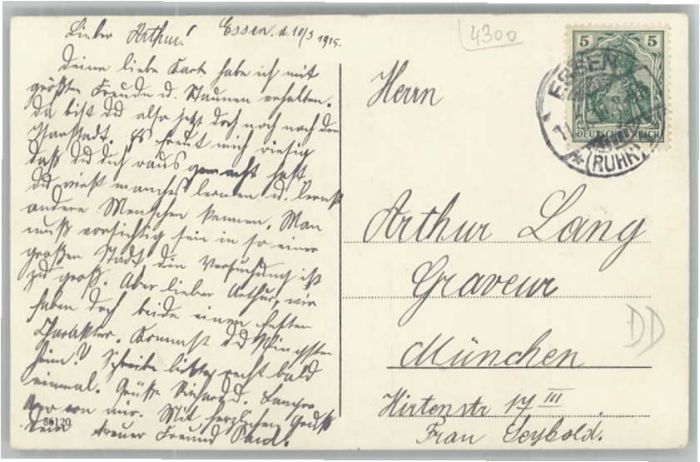 Lieber Arthur! Essen. d. 10/3 1915.
Deine liebe Karte habe ich mit
größten Freude u. Staunen erhalten.
Da bist du also jetzt doch noch nach der
Isarstadt. Es freut mich riesig
daß du dich raus gemacht hast.
du wirst manches lernen u. lernst
andere Menschen kennen. Man
muß vorsichtig sein in so einer
großen Stadt die Versuchung ist
zu groß. Aber lieber Arthur, wir
haben doch beide einen festen
Charakter. Kommst du Pfingsten
heim? Schreibe bitte recht bald
einmal. Grüße Richard
von mir. Mit herzlichem Gruß
dein treuer Freund Paul.
86120
4300
5 5
DEUTSCHES REICH
ESSEN
(RUHR)
Herrn
Arthur Lang
Graveur
München
Hirtenstr 17 III
Frau Seybold.
DD